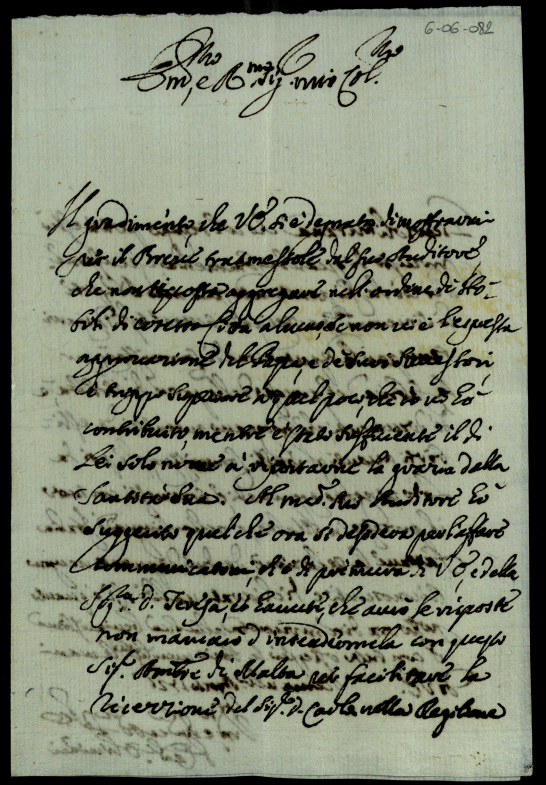 6-06-082
Em.mo e R.mo Sig. mio Col.mo
Il gradimento, che V.E. si è degnata dimostrarmi
per il Breve trasmessole dal suo Auditore,
che non si possa aggregare nell'ordine de No-
bili di cotesta Città alcuno, se non vi è
approvazione del Papa, e de suoi Successori,
è troppo superiore a quel poco, che io vi hò
contribuito, mentre è stato sufficiente il di
Lei solo nome à riportarne la grazia dalla
Santità Sua. Al med.o suo Auditore hò
suggerito quel che ora si desidera per l'affare
communicatomi, che è di premura di V.E., e della
Sig.ra D. Teresa, et havute, che avrò le risposte
non mancarò d'intendermela con questo
Sig.r Amb.re di Malta per facilitare la
ricezzione del Sig.r D. Carlo nella Religione